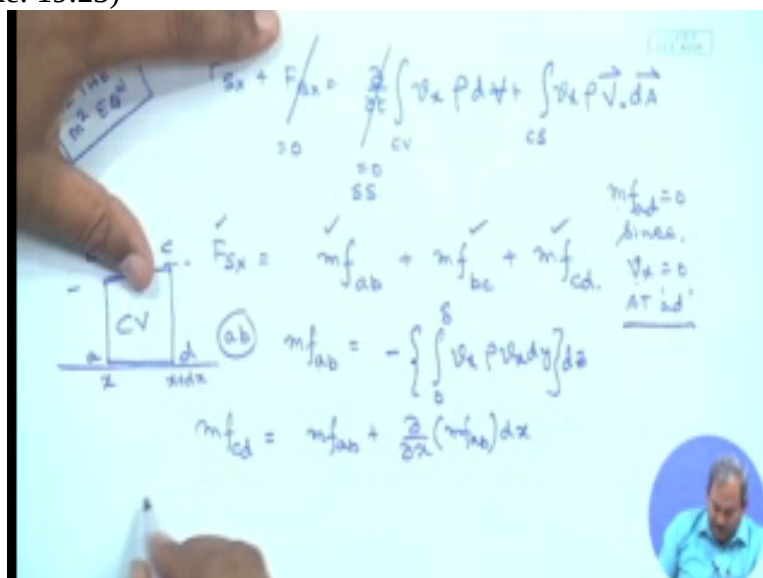 F_Sx + F_Bx = ∂/∂t ∫_CV v_x ρ d∀ + ∫_CS v_x ρ V⃗ . dA⃗
= 0
= 0
SS
M² EQN
mf_ad = 0
Since,
v_x = 0
AT 'ad'
F_Sx = mf_ab + mf_bc + mf_cd.
c
CV
a d
x x+dx
ab mf_ab = - { ∫_0^δ v_x ρ v_x dy } dz
mf_cd = mf_ab + ∂/∂x (mf_ab) dx